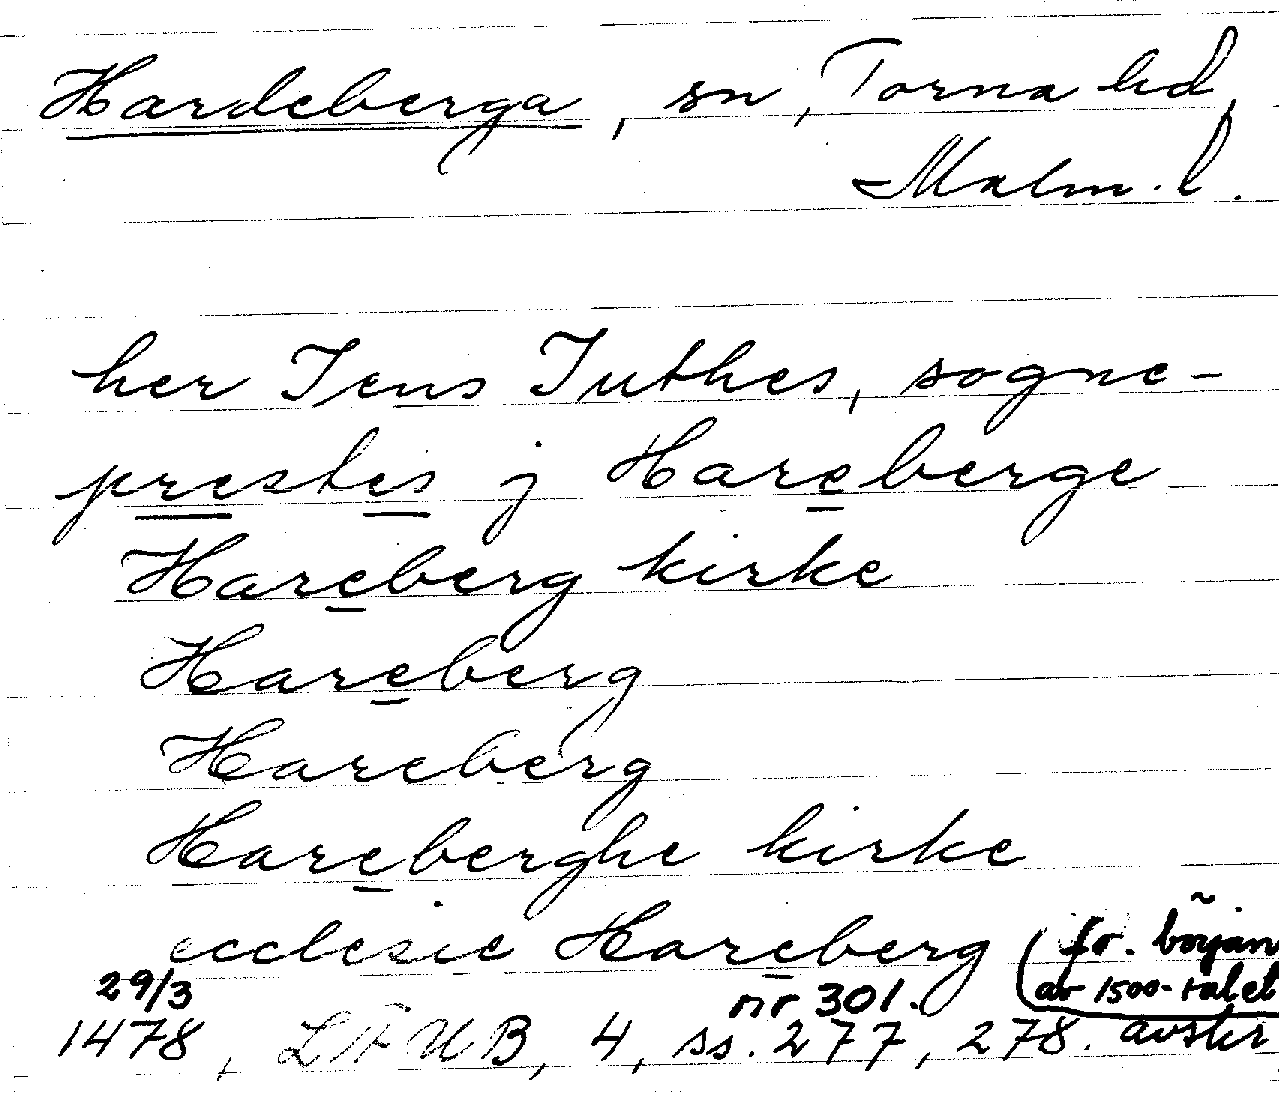 Hardeberga, sn, Torna hd,
Malm. l.
her Jens Juthes, sogne-
prestes j Hareberge
Hareberg kirke
Hareberg
Hareberg
Hareberghe kirke
ecclesie Hareberg (fr. början
29/3 nr 301. av 1500-talet
1478, LÄUB, 4, ss. 277, 278. avskr